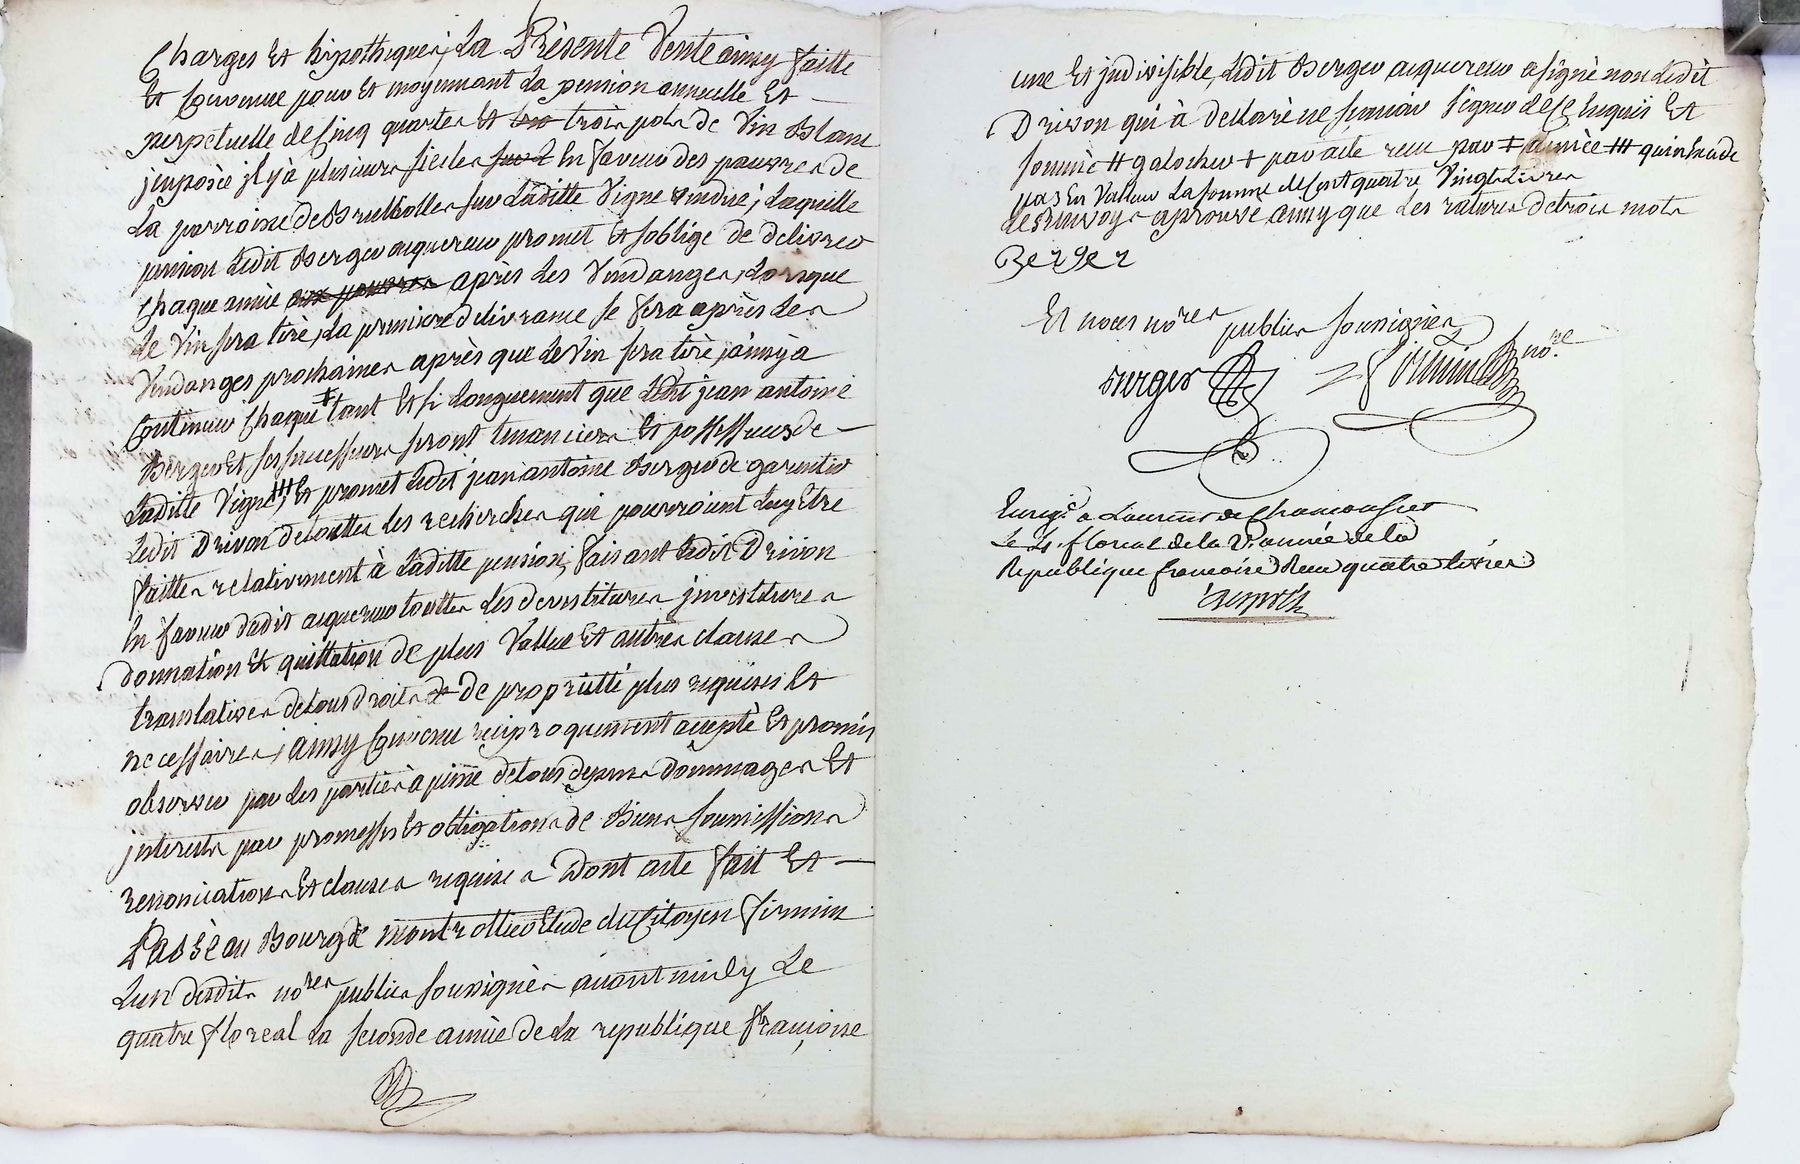 Charges et hipotheques, La Présente Vente ainsy faitte
et Convenue pour et moyennant La pension annuelle et
perpetuelle de Cinq quartes et trois pots de Vin blanc
jmposée jl y à plusieurs siecles En faveur des pauvres de
La parroisse de Brullolles sur Laditte Vigne vendue; Laquelle
pension Ledit Berger aquereur promet et soblige de delivrer
chaque année aux pauvres après Les Vendanges, Lorsque
Le Vin sera tiré, La première delivrance se fera après Les
Vendanges prochaines après que Le Vin sera tiré, ainsy à
Continuer Chaque ‡ tant et si Longuement que Ledit jean antoine
Berger et ses successeurs seront tenanciers et possesseurs de
Laditte Vigne, ⧻ et promet Ledit jean antoine Berger de garentir
Ledit Drivon de touttes les recherches qui pourroient Luy être
faittes relativement à Laditte pension, faisant Ledit Drivon
En faveur dudit aquereur touttes Les devestitures jnvestitures
donnation et quittation de plus Vallue et autres clauses
translatives de tous droits de de propriété plus requises et
necessaires, ainsy Convenu reciproquement accepté et promis
observer par Les parties à peine de tous depens dommages et
jnterests par promesses et obligations de Biens soumissions
renonciations et clauses requises Dont acte fait et
Passé au Bourg de montrottier Etude du Citoyen firmin
L'un desdits nores publics soussignés avant midy Le
quatre floreal La seconde année de La republique françoise
une et jndivisible, Ledit Berger aquereur a signé non Ledit
Drivon qui à declaré ne sçavoir signer de Ce Enquis et
sommé ⧺ galocher + par acte recu par ‡ année ⧻ qui n'Excede
pas En Valleur La somme de Cent quatre Vingt Livres
Les renvoys aprouvé ainsy que Les ratures de trois mots
Berger
Et nous nores publics soussignés
Berger firmin nore
Enregt. a Laurent de Chamousset
Le 4 floreal de la 2e année de la
Republique francoise Reçu quatre livres